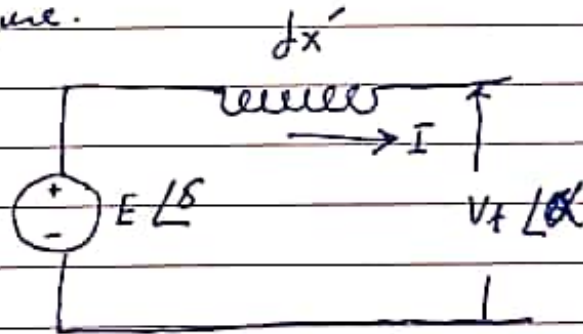 jx′
I
+
-
E∠δ
Vt∠α